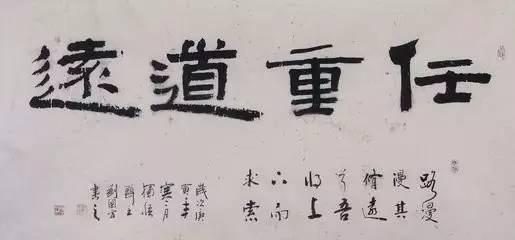 任重道遠
路漫
漫其
脩遠
兮吾
将上
下而
求索
歲次庚
寅年
寒月
書之